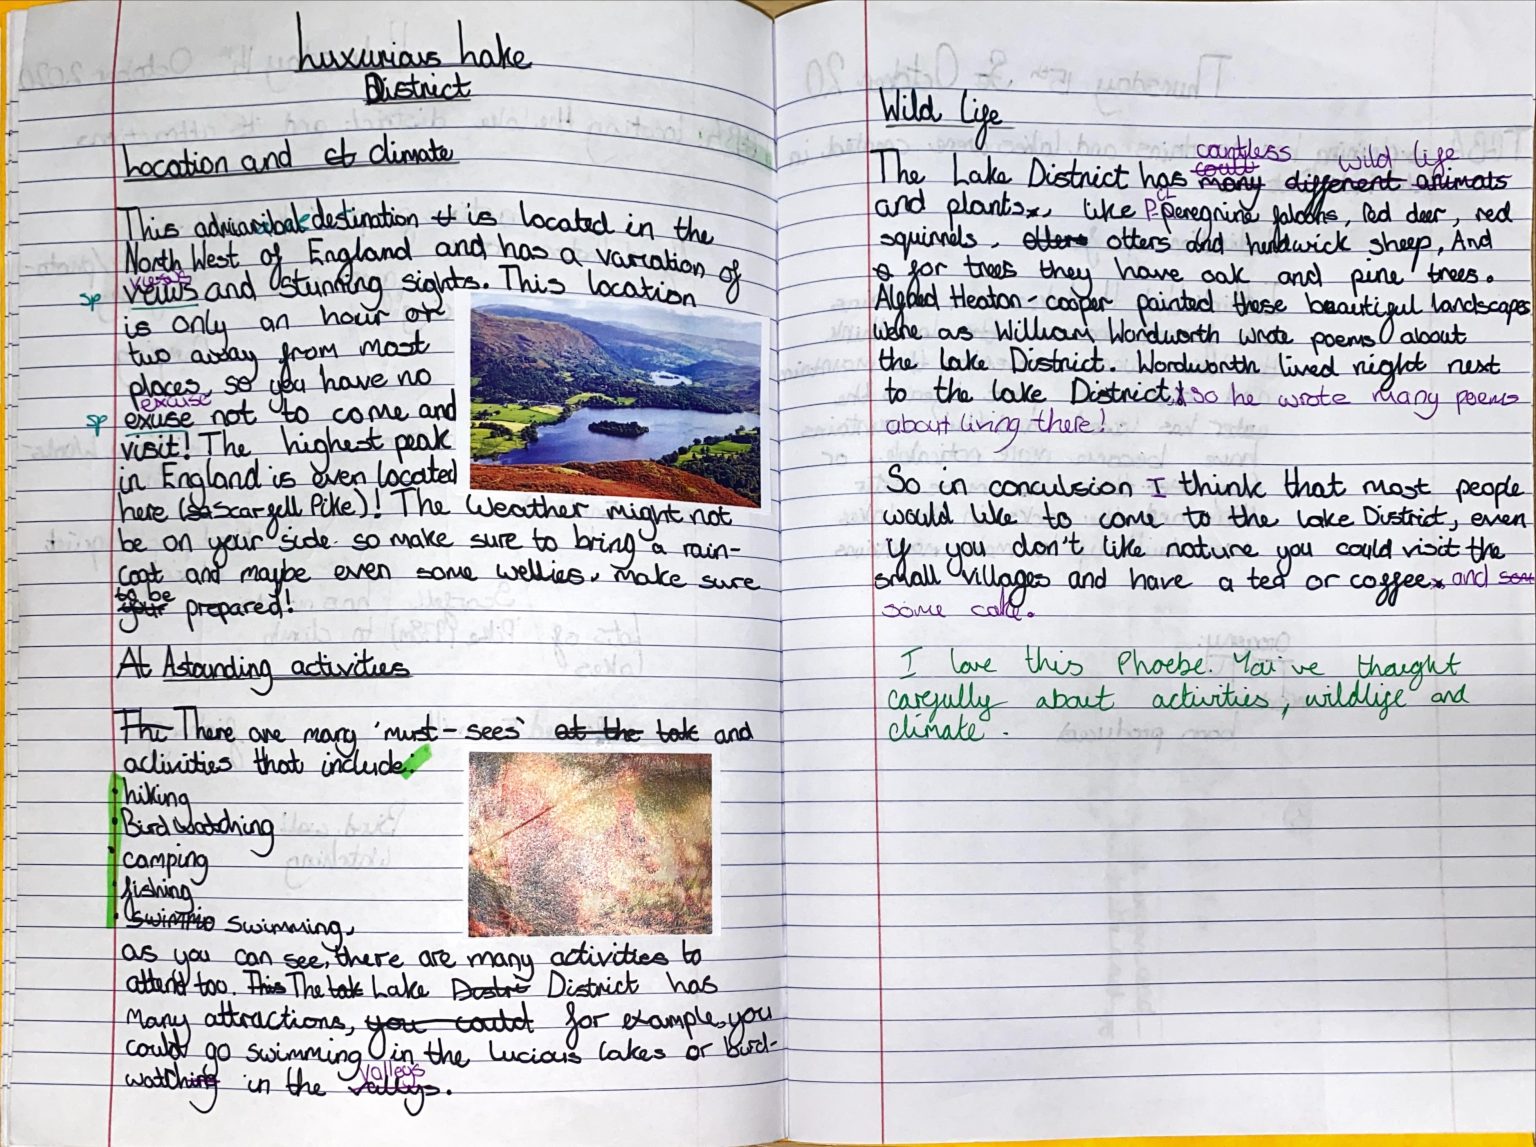 Luxurious Lake
District
Location and climate
This admirable destination is located in the
North West of England and has a variation of
views
sp veiws and stunning sights. This location
is only an hour or
two away from most
places, so you have no
excuse
sp exuse not to come and
visit! The highest peak
in England is even located
here (Scarfell Pike)! The weather might not
be on your side so make sure to bring a rain-
coat and maybe even some wellies, make sure
to be
prepared!
Astounding activities
There are many 'must-sees' and
activities that include:
• hiking
• Bird watching
• camping
• fishing
• swimming,
as you can see, there are many activities to
attend too. The Lake District has
many attractions, for example, you
could go swimming in the lucious lakes or bird-
watching in the valleys.
Wild Life
countless wild life
The Lake District has
and plants, like peregrine falcons, Red deer, red
squirrels, otters and herdwick sheep, And
for trees they have oak and pine trees.
Alfred Heaton-cooper painted these beautiful landscapes
were as William Wordworth wrote poems about
the Lake District. Wordworth lived right next
to the Lake District so he wrote many poems
about living there!
So in conculsion I think that most people
would like to come to the Lake District, even
if you don't like nature you could visit the
small villages and have a tea or coffee and
some cake.
I love this Phoebe. You've thought
carefully about activities, wildlife and
climate.